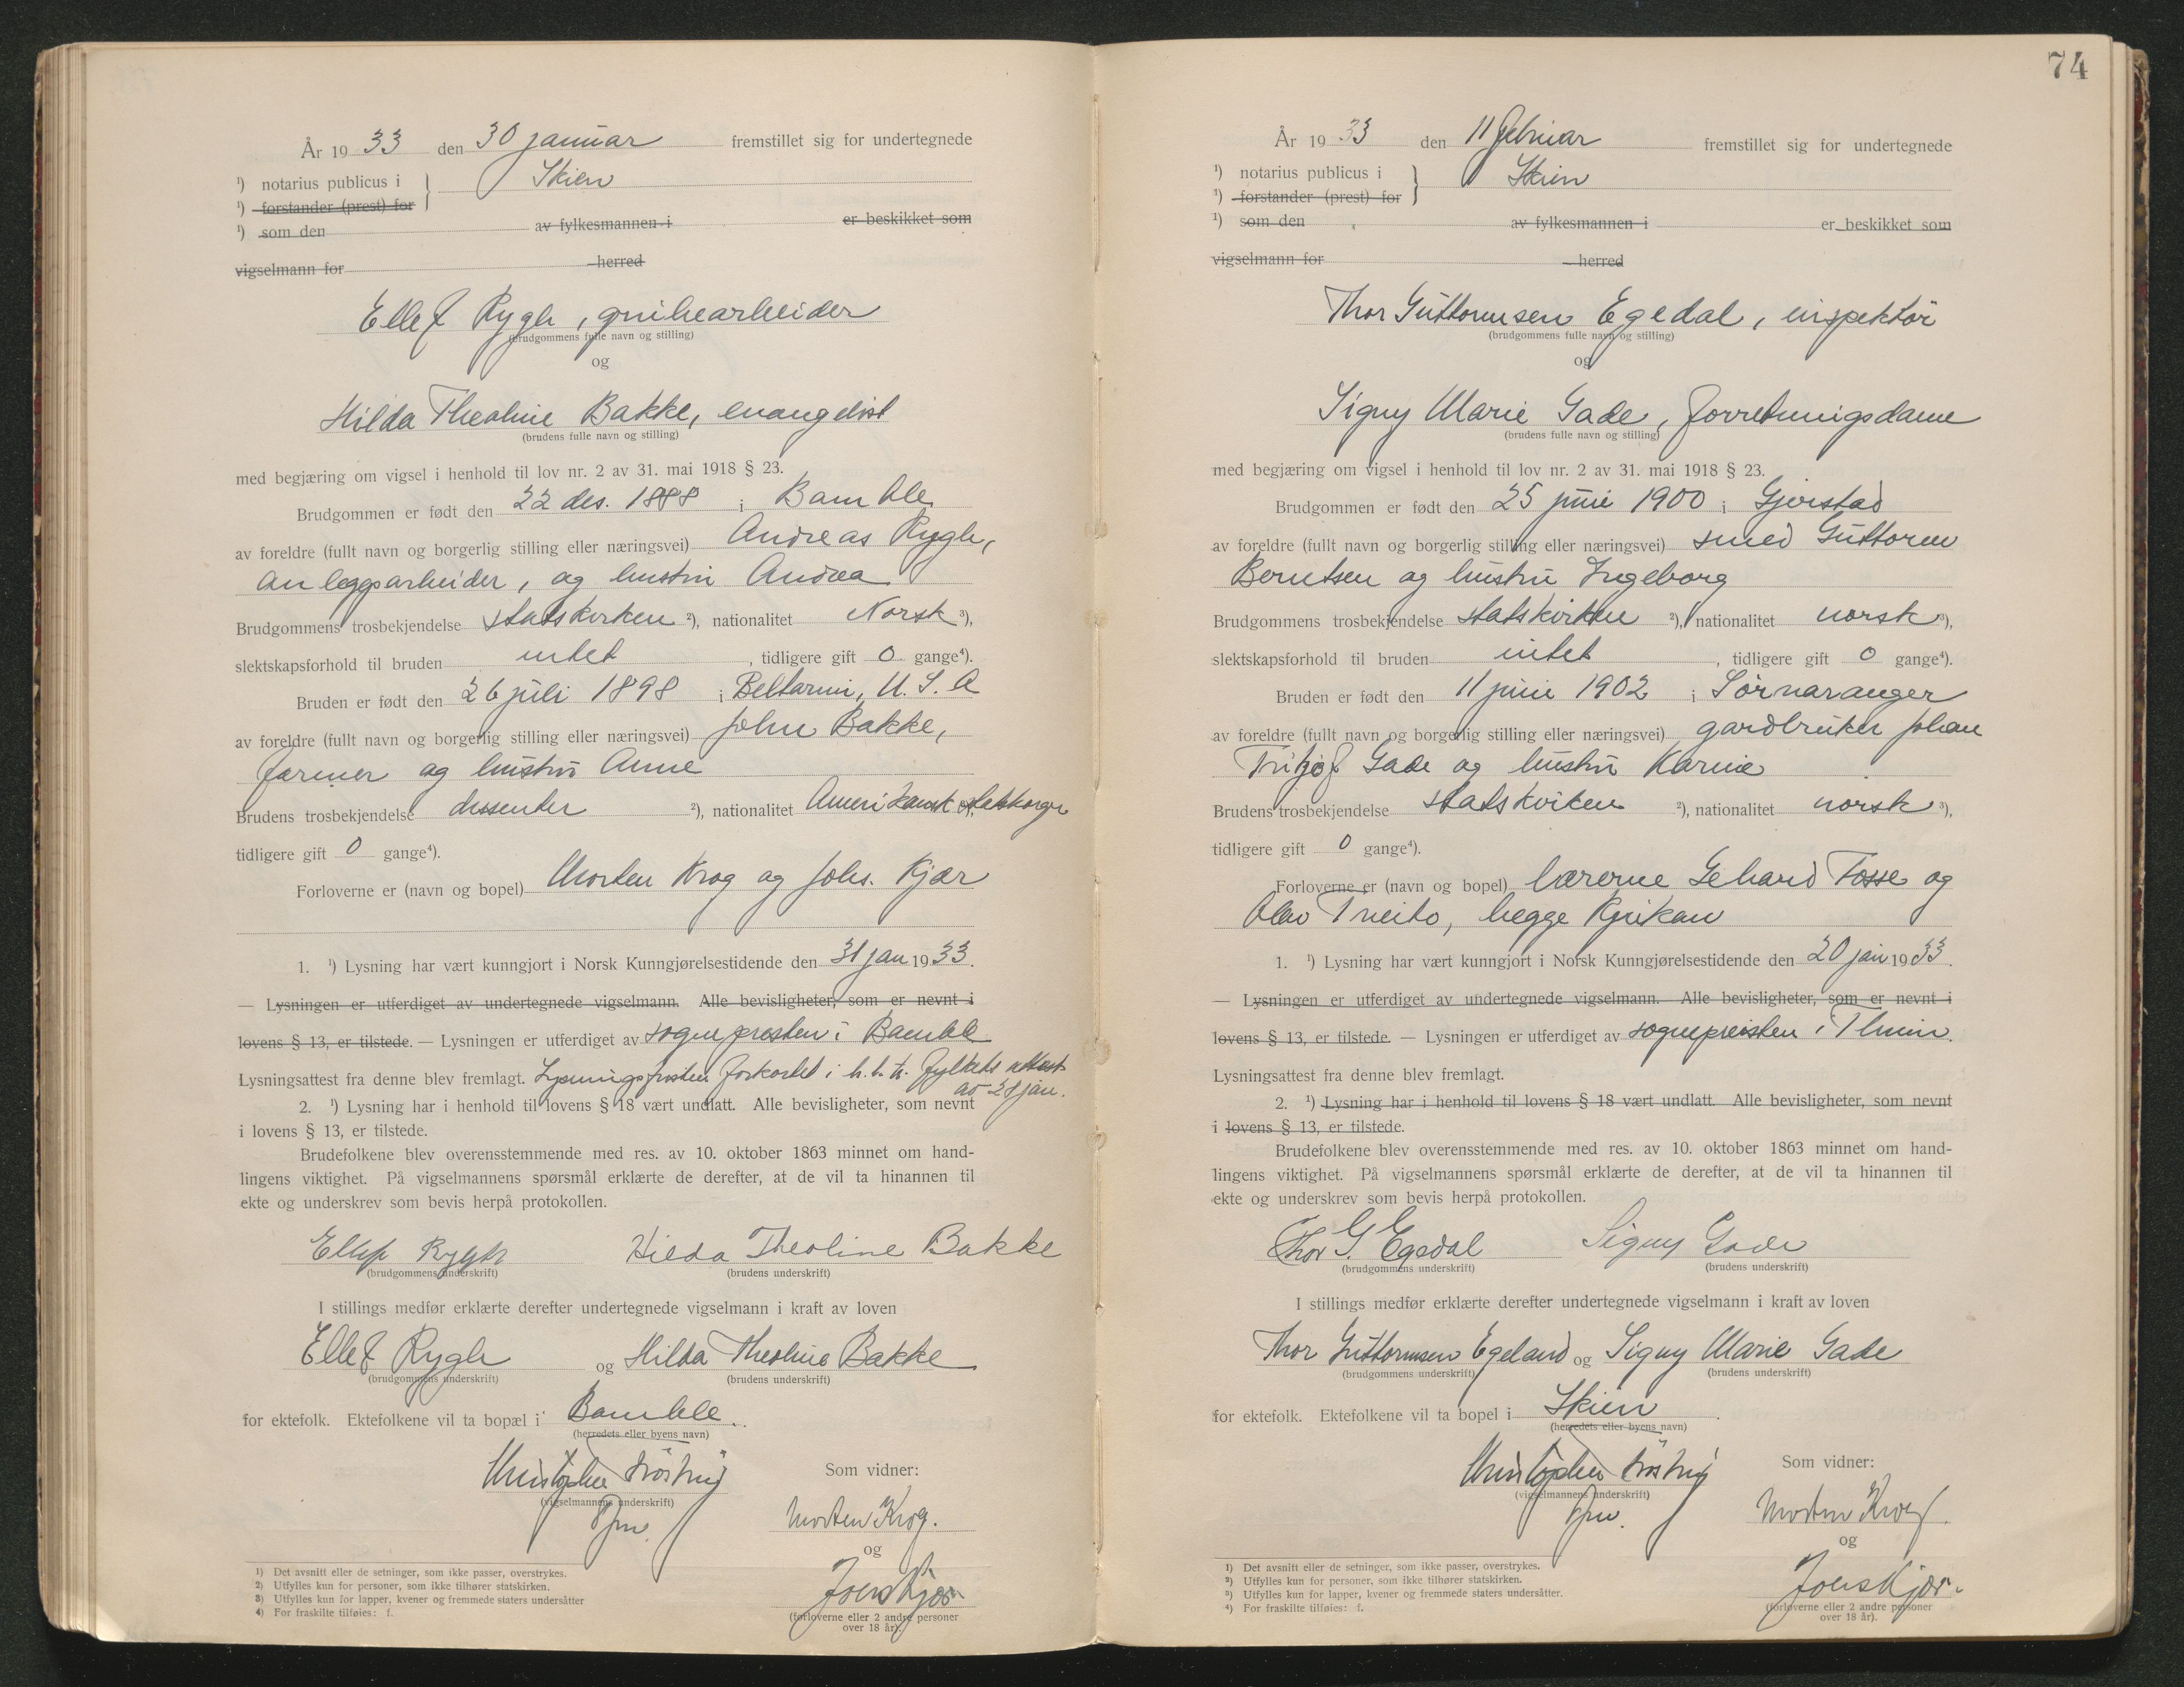 År 1933 den 30 januar fremstillet sig for undertegnede
¹) notarius publicus i } Skien
¹) forstander (prest) for
¹) som den av fylkesmannen i er beskikket som
vigselmann for herred
Ellef Rygh, gruhearbeider
(brudgommens fulle navn og stilling)
og
Hilda Theoline Bakke, evangelist
(brudens fulle navn og stilling)
med begjæring om vigsel i henhold til lov nr. 2 av 31. mai 1918 § 23.
Brudgommen er født den 22 des. 1888 i Bamble
av foreldre (fullt navn og borgerlig stilling eller næringsvei) Andreas Rygh,
anleggsarbeider, og hustru Andrea
Brudgommens trosbekjendelse statskirken ²), nationalitet Norsk ³),
slektskapsforhold til bruden intet, tidligere gift 0 gange⁴).
Bruden er født den 26 juli 1898 i U. S. A
av foreldre (fullt navn og borgerlig stilling eller næringsvei) John Bakke,
farmer og hustru Anne
Brudens trosbekjendelse dissenter ²), nationalitet Amerikansk statsborger ³),
tidligere gift 0 gange⁴).
Forloverne er (navn og bopel) Morten Krog og Johs. Kjær
1. ¹) Lysning har vært kunngjort i Norsk Kunngjørelsestidende den 31 jan 1933.
— Lysningen er utferdiget av undertegnede vigselmann. Alle bevisligheter, som er nevnt i
lovens § 13, er tilstede. — Lysningen er utferdiget av sognepresten i Bamble
Lysningsattest fra denne blev fremlagt. Lysningsfristen forkortet i h. t. fylkets attest
av 28 jan.
2. ¹) Lysning har i henhold til lovens § 18 vært undlatt. Alle bevisligheter, som nevnt
i lovens § 13, er tilstede.
Brudefolkene blev overensstemmende med res. av 10. oktober 1863 minnet om hand-
lingens viktighet. På vigselmannens spørsmål erklærte de derefter, at de vil ta hinannen til
ekte og underskrev som bevis herpå protokollen.
Ellef Rygh Hilda Theoline Bakke
(brudgommens underskrift) (brudens underskrift)
I stillings medfør erklærte derefter undertegnede vigselmann i kraft av loven
Ellef Rygh og Hilda Theoline Bakke
(brudgommens underskrift) (brudens underskrift)
for ektefolk. Ektefolkene vil ta bopæl i Bamble.
(herredets eller byens navn)
Christopher
(vigselmannens underskrift)
Som vidner:
Morten Krog.
og
Johs Kjær
(forloverne eller 2 andre personer
over 18 år).
¹) Det avsnitt eller de setninger, som ikke passer, overstrykes.
²) Utfylles kun for personer, som ikke tilhører statskirken.
³) Utfylles kun for lapper, kvener og fremmede staters undersåtter
⁴) For fraskilte tilføies: f.
74
År 1933 den 11 februar fremstillet sig for undertegnede
¹) notarius publicus i } Skien
¹) forstander (prest) for
¹) som den av fylkesmannen i er beskikket som
vigselmann for herred
Thor Guttormsen Egedal, inspektør
(brudgommens fulle navn og stilling)
og
Signy Marie Gade, forretningsdame
(brudens fulle navn og stilling)
med begjæring om vigsel i henhold til lov nr. 2 av 31. mai 1918 § 23.
Brudgommen er født den 25 juni 1900 i Gjerstad
av foreldre (fullt navn og borgerlig stilling eller næringsvei) smed Guttorm
Berntsen og hustru Ingeborg
Brudgommens trosbekjendelse statskirken ²), nationalitet norsk ³),
slektskapsforhold til bruden intet, tidligere gift 0 gange⁴).
Bruden er født den 11 juni 1902 i Sørvaranger
av foreldre (fullt navn og borgerlig stilling eller næringsvei) gardbruker Johan
Fritjof Gade og hustru Karine
Brudens trosbekjendelse statskirken ²), nationalitet norsk ³),
tidligere gift 0 gange⁴).
Forloverne er (navn og bopel) lærerne Gehard Fosse og
Olav begge Rjukan
1. ¹) Lysning har vært kunngjort i Norsk Kunngjørelsestidende den 20 jan 1933.
— Lysningen er utferdiget av undertegnede vigselmann. Alle bevisligheter, som er nevnt i
lovens § 13, er tilstede. — Lysningen er utferdiget av sognepresten i
Lysningsattest fra denne blev fremlagt.
2. ¹) Lysning har i henhold til lovens § 18 vært undlatt. Alle bevisligheter, som nevnt
i lovens § 13, er tilstede.
Brudefolkene blev overensstemmende med res. av 10. oktober 1863 minnet om hand-
lingens viktighet. På vigselmannens spørsmål erklærte de derefter, at de vil ta hinannen til
ekte og underskrev som bevis herpå protokollen.
Thor G. Egedal Signy Gade
(brudgommens underskrift) (brudens underskrift)
I stillings medfør erklærte derefter undertegnede vigselmann i kraft av loven
Thor Guttormsen Egeland og Signy Marie Gade
(brudgommens underskrift) (brudens underskrift)
for ektefolk. Ektefolkene vil ta bopel i Skien.
(herredets eller byens navn)
Christopher
(vigselmannens underskrift)
Som vidner:
Morten Krog.
og
Johs Kjær.
(forloverne eller 2 andre personer
over 18 år).
¹) Det avsnitt eller de setninger, som ikke passer, overstrykes.
²) Utfylles kun for personer, som ikke tilhører statskirken.
³) Utfylles kun for lapper, kvener og fremmede staters undersåtter.
⁴) For fraskilte tilføies: f.